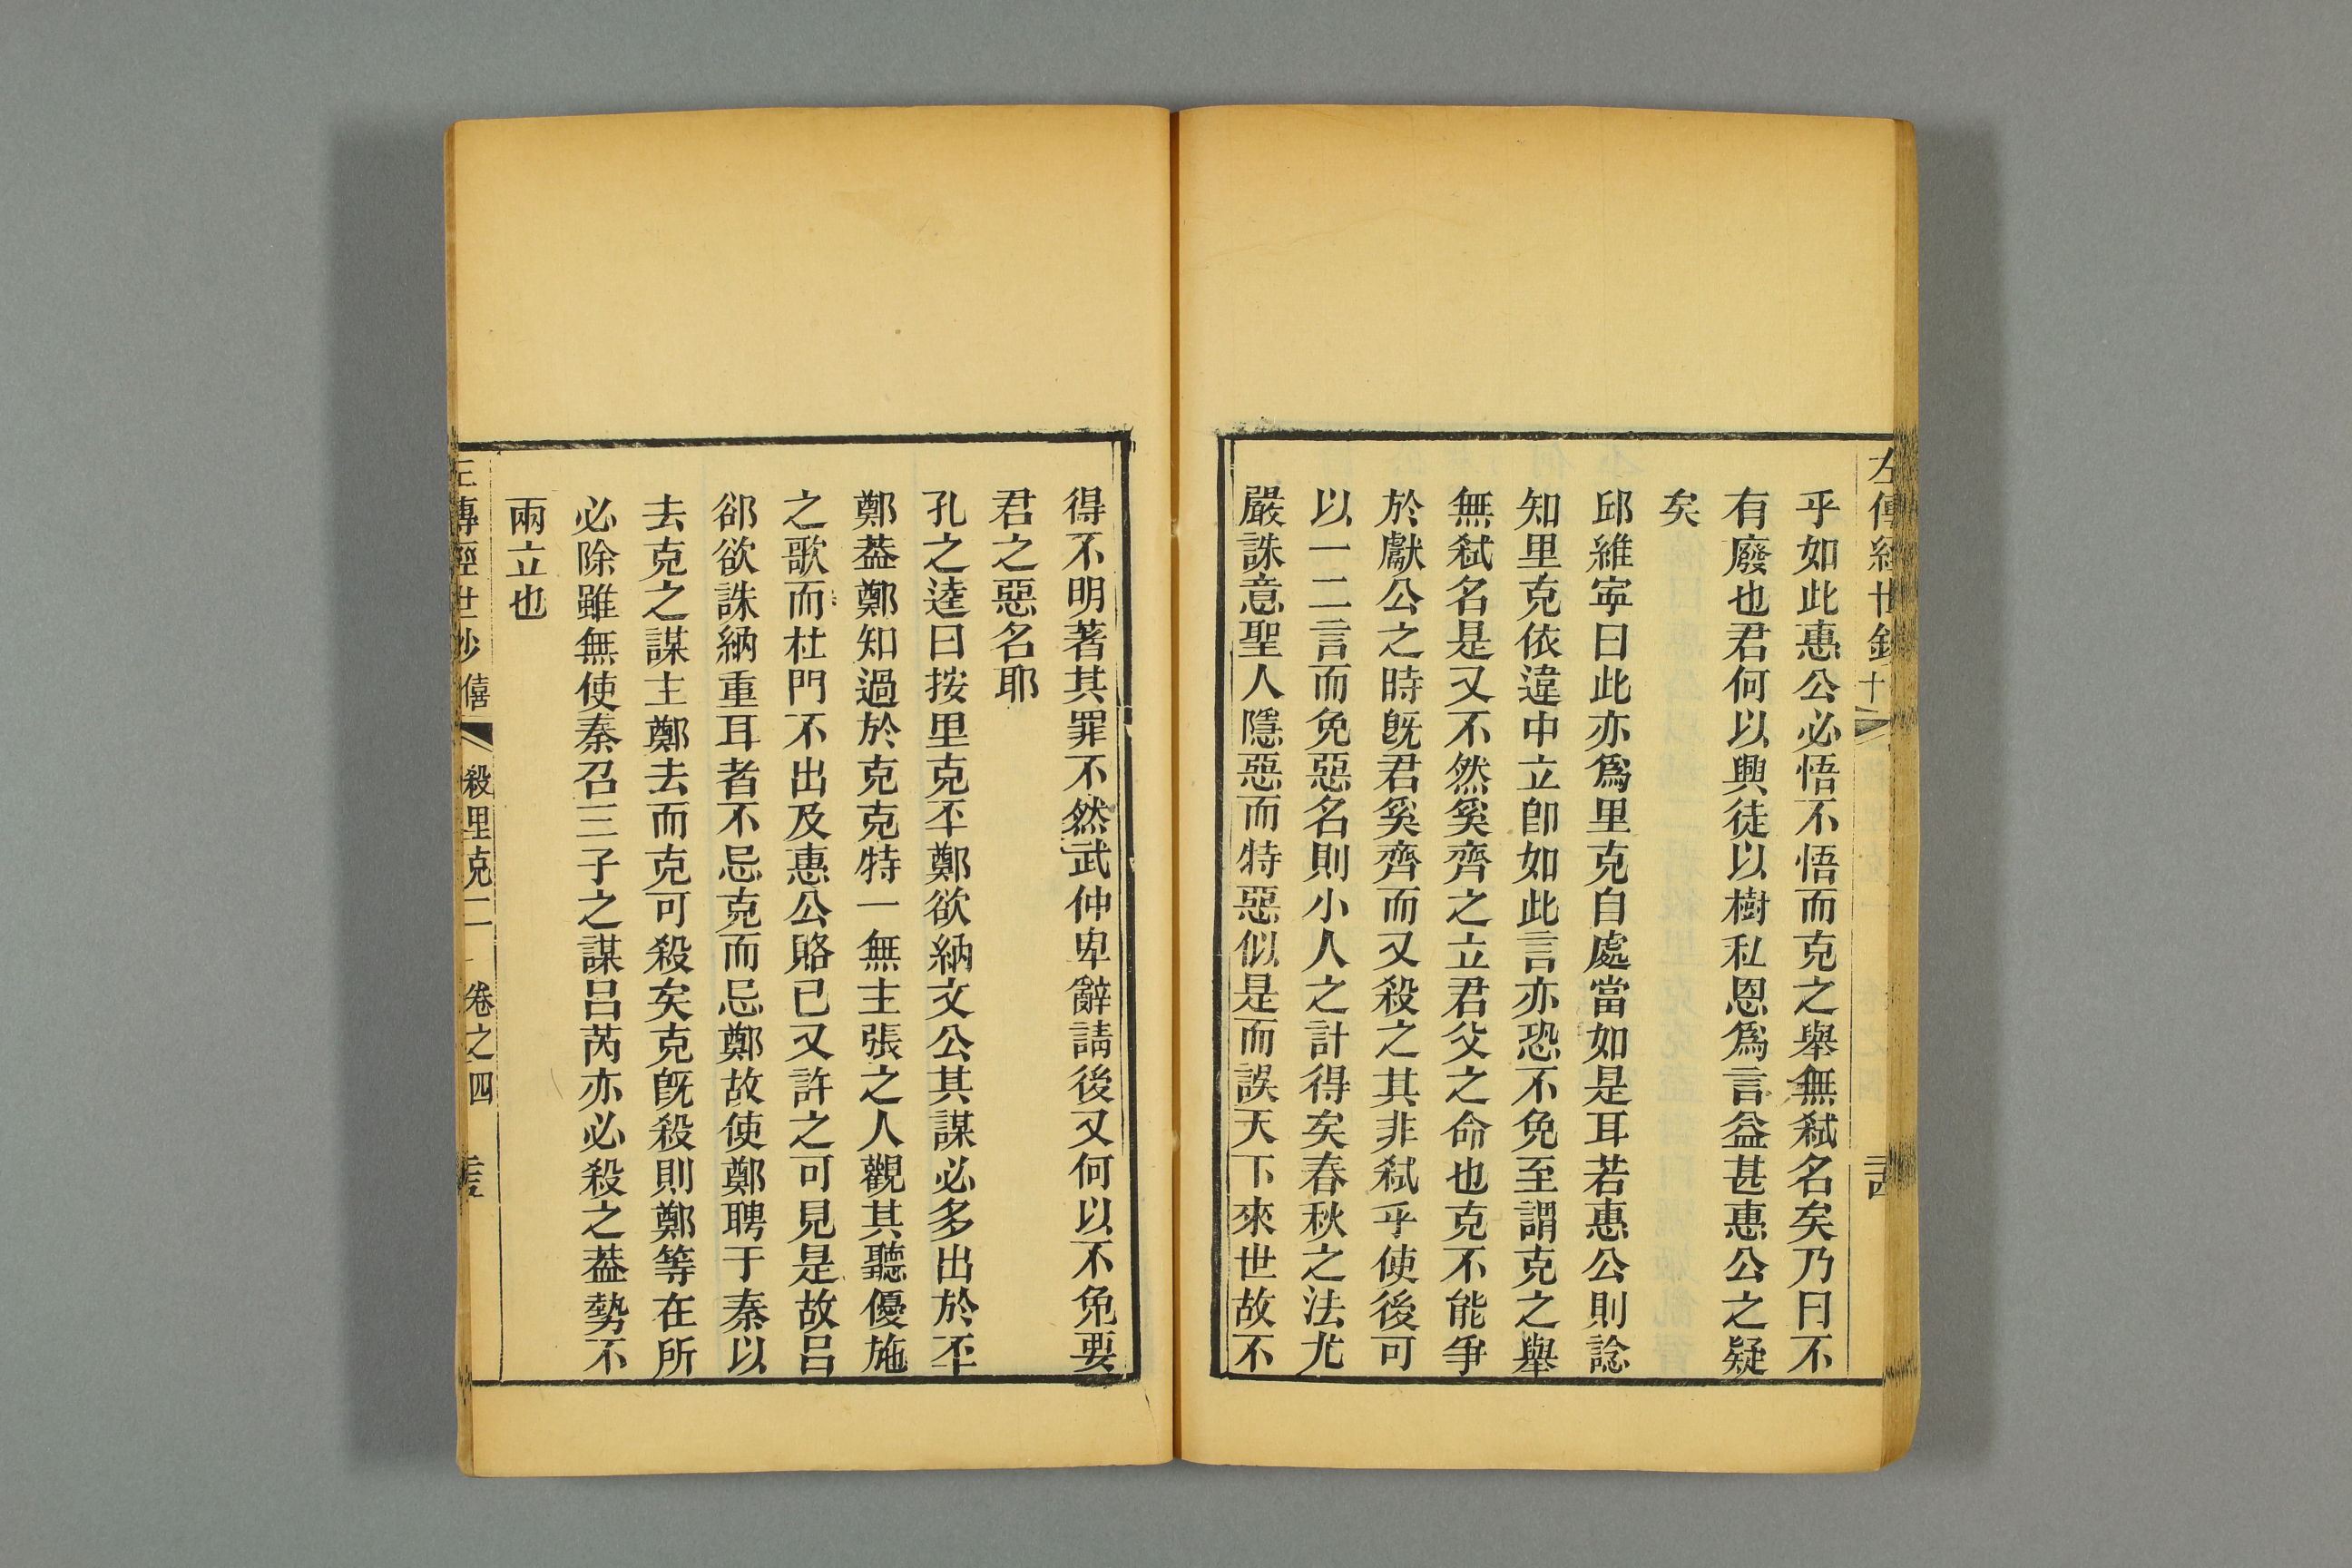 左傳經世鈔十
二十四
乎如此惠公必悟不悟而克之舉無弒名矣乃曰不
有廢也君何以興徒以樹私恩爲言益甚惠公之疑
矣
邱維寧曰此亦爲里克自處當如是耳若惠公則諗
知里克依違中立卽如此言亦恐不免至謂克之舉
無弒名是又不然奚齊之立君父之命也克不能爭
於獻公之時旣君奚齊而又殺之其非弒乎使後可
以一二言而免惡名則小人之計得矣春秋之法尤
嚴誅意聖人隱惡而特惡似是而誤天下來世故不
得不明著其罪不然武仲卑辭請後又何以不免要
君之惡名耶
孔之逵曰按里克丕鄭欲納文公其謀必多出於丕
鄭葢鄭知過於克克特一無主張之人觀其聽優施
之歌而杜門不出及惠公賂已又許之可見是故呂
郤欲誅納重耳者不忌克而忌鄭故使鄭聘于秦以
去克之謀主鄭去而克可殺矣克旣殺則鄭等在所
必除雖無使秦召三子之謀呂芮亦必殺之葢勢不
兩立也
左傳經世鈔 僖 殺里克二 卷之四 二十五